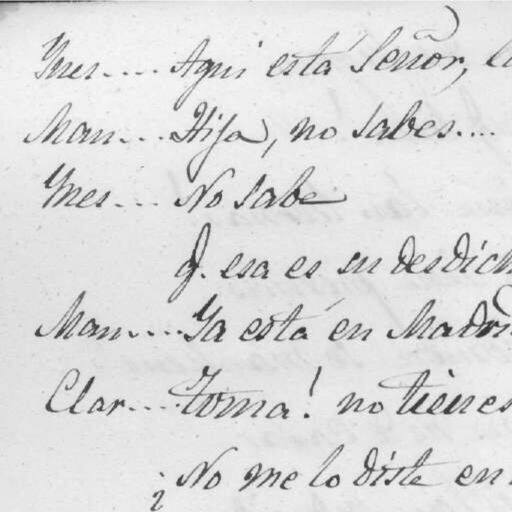 Ynes.... Aqui está Señor,
Man... Hija, no sabes....
Ynes... No sabe
q. esa es su desdich
Man.... Ya está en Madri
Clar.... Toma! no tienes
¿No me lo diste en